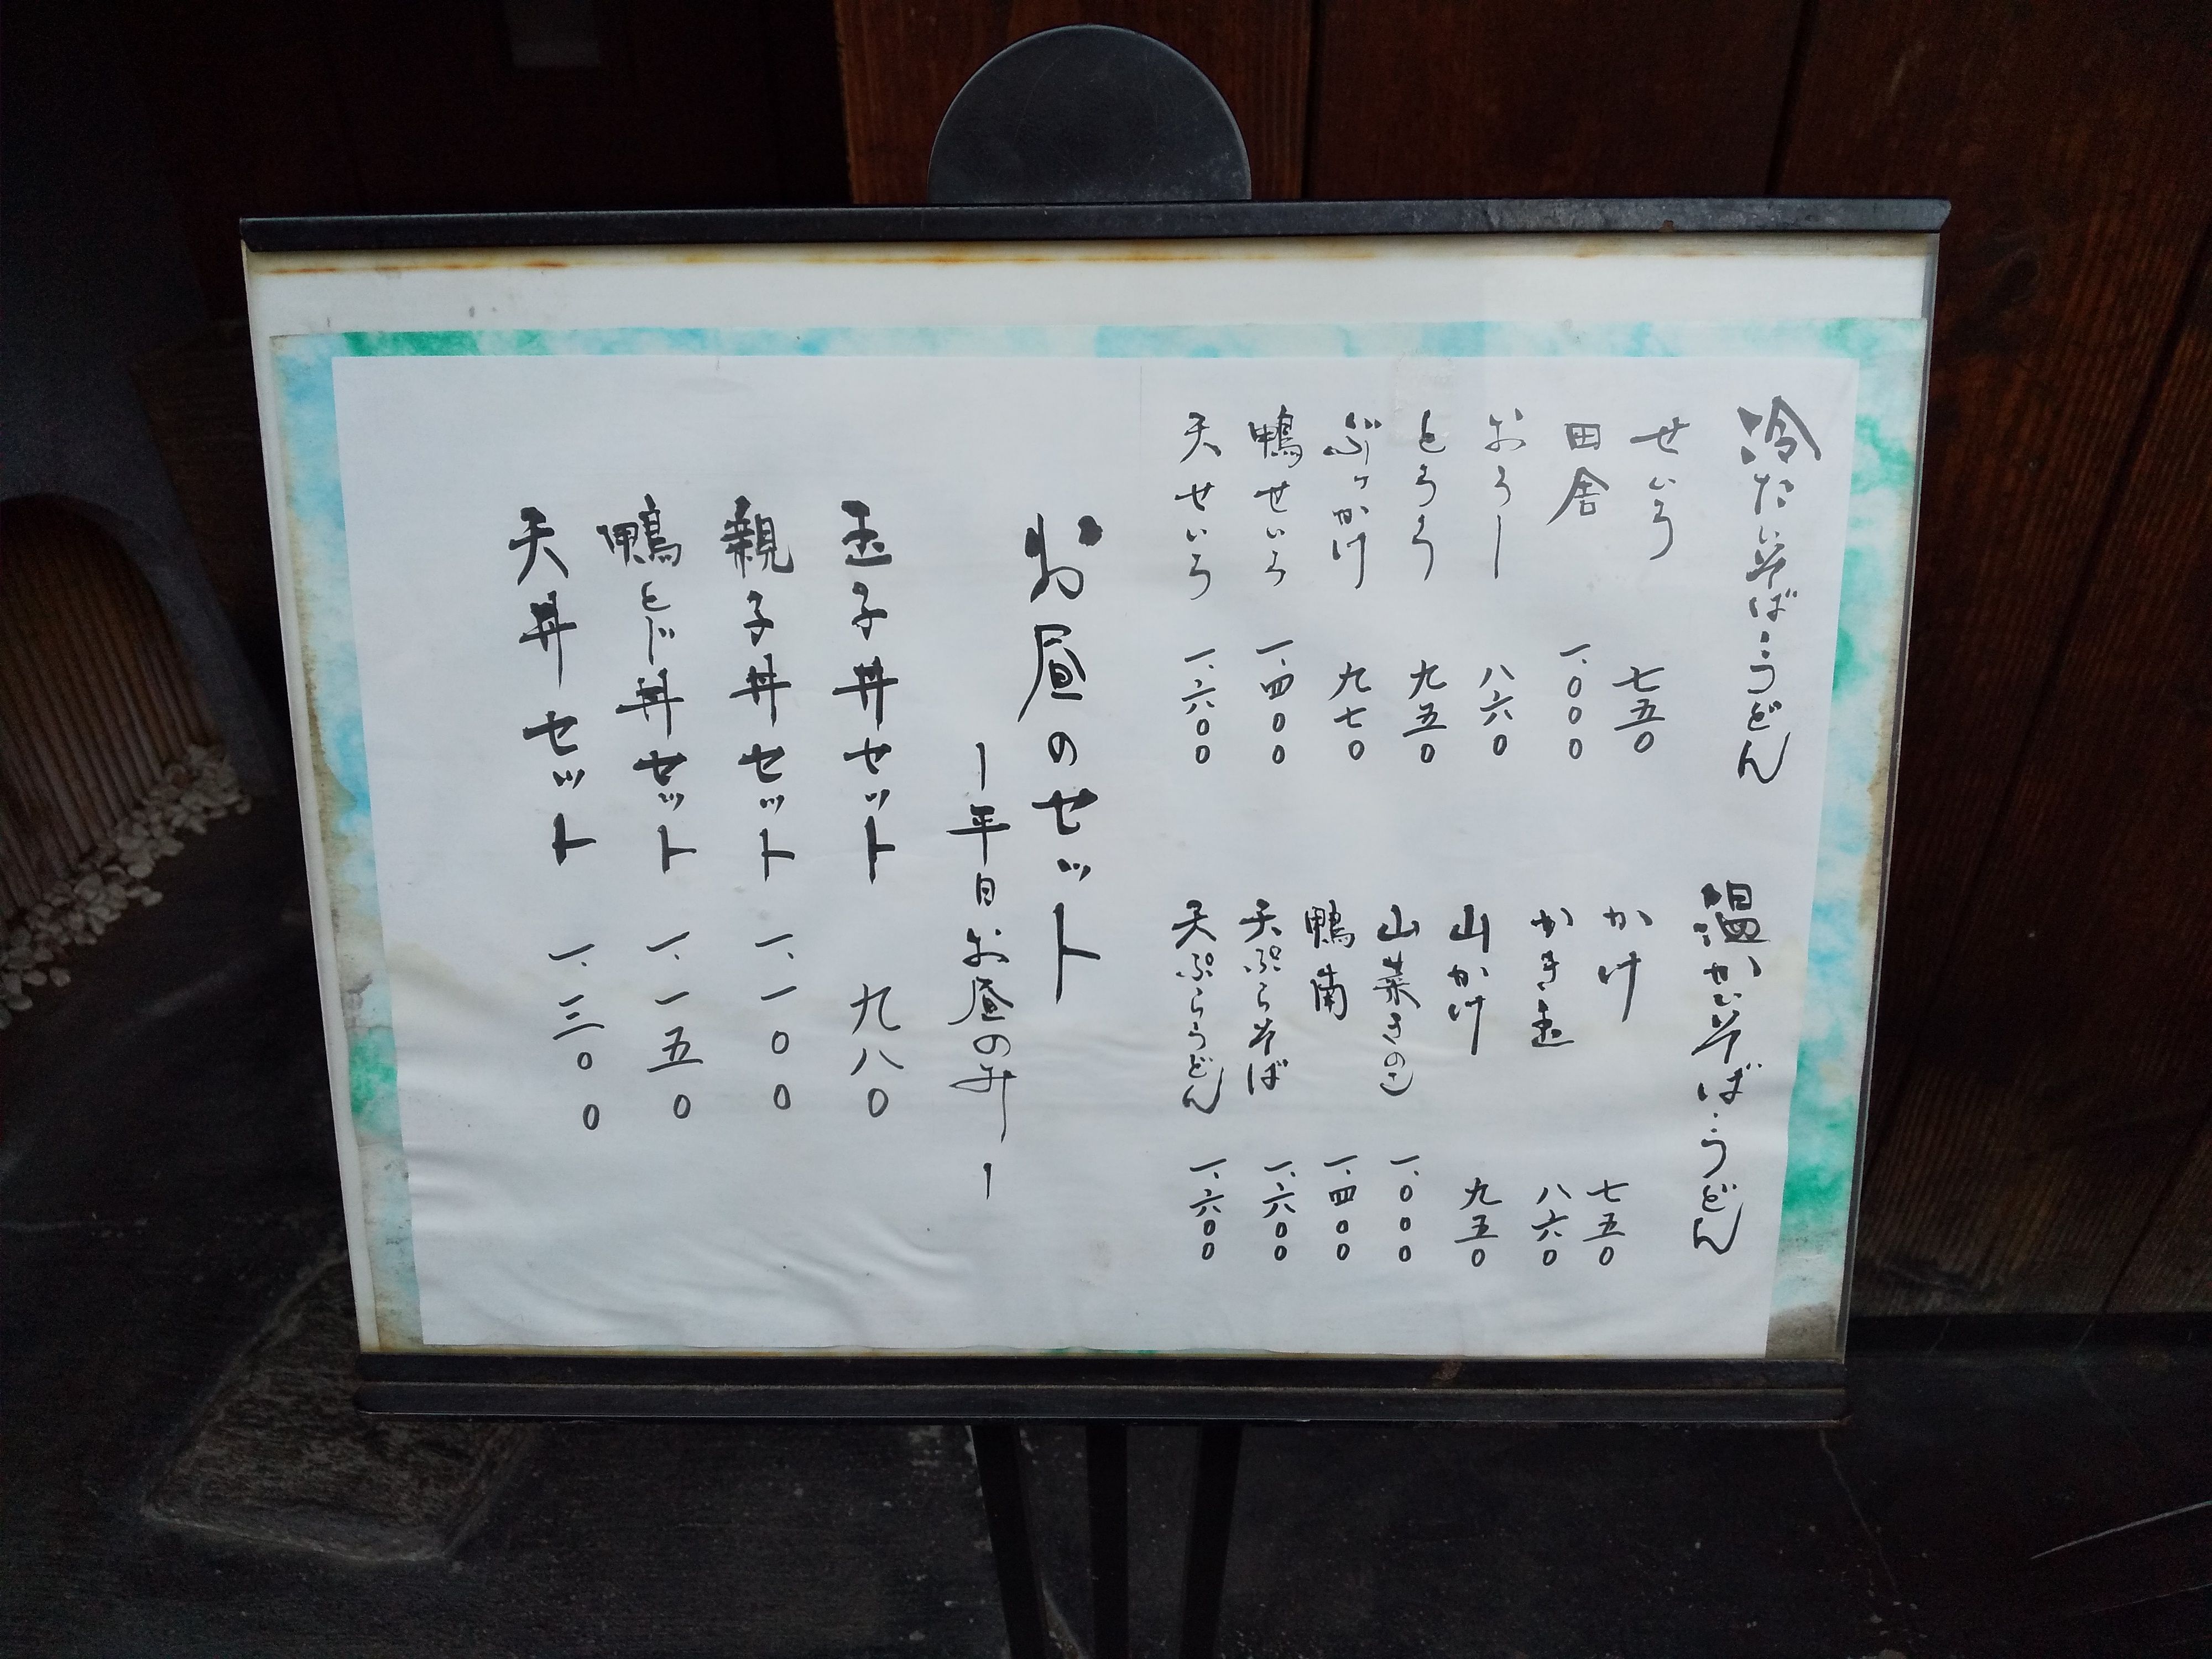 冷たいそば・うどん
せいろ 七五〇
田舎 一、〇〇〇
おろし 八六〇
とろろ 九五〇
ぶっかけ 九七〇
鴨せいろ 一、四〇〇
天せいろ 一、六〇〇
温かいそば・うどん
かけ 七五〇
かき玉 八六〇
山かけ 九五〇
山菜きのこ 一、〇〇〇
鴨南 一、四〇〇
天ぷらそば 一、六〇〇
天ぷらうどん 一、六〇〇
お昼のセット
ー平日お昼のみー
玉子丼セット 九八〇
親子丼セット 一、一〇〇
鴨とじ丼セット 一、一五〇
天丼セット 一、三〇〇